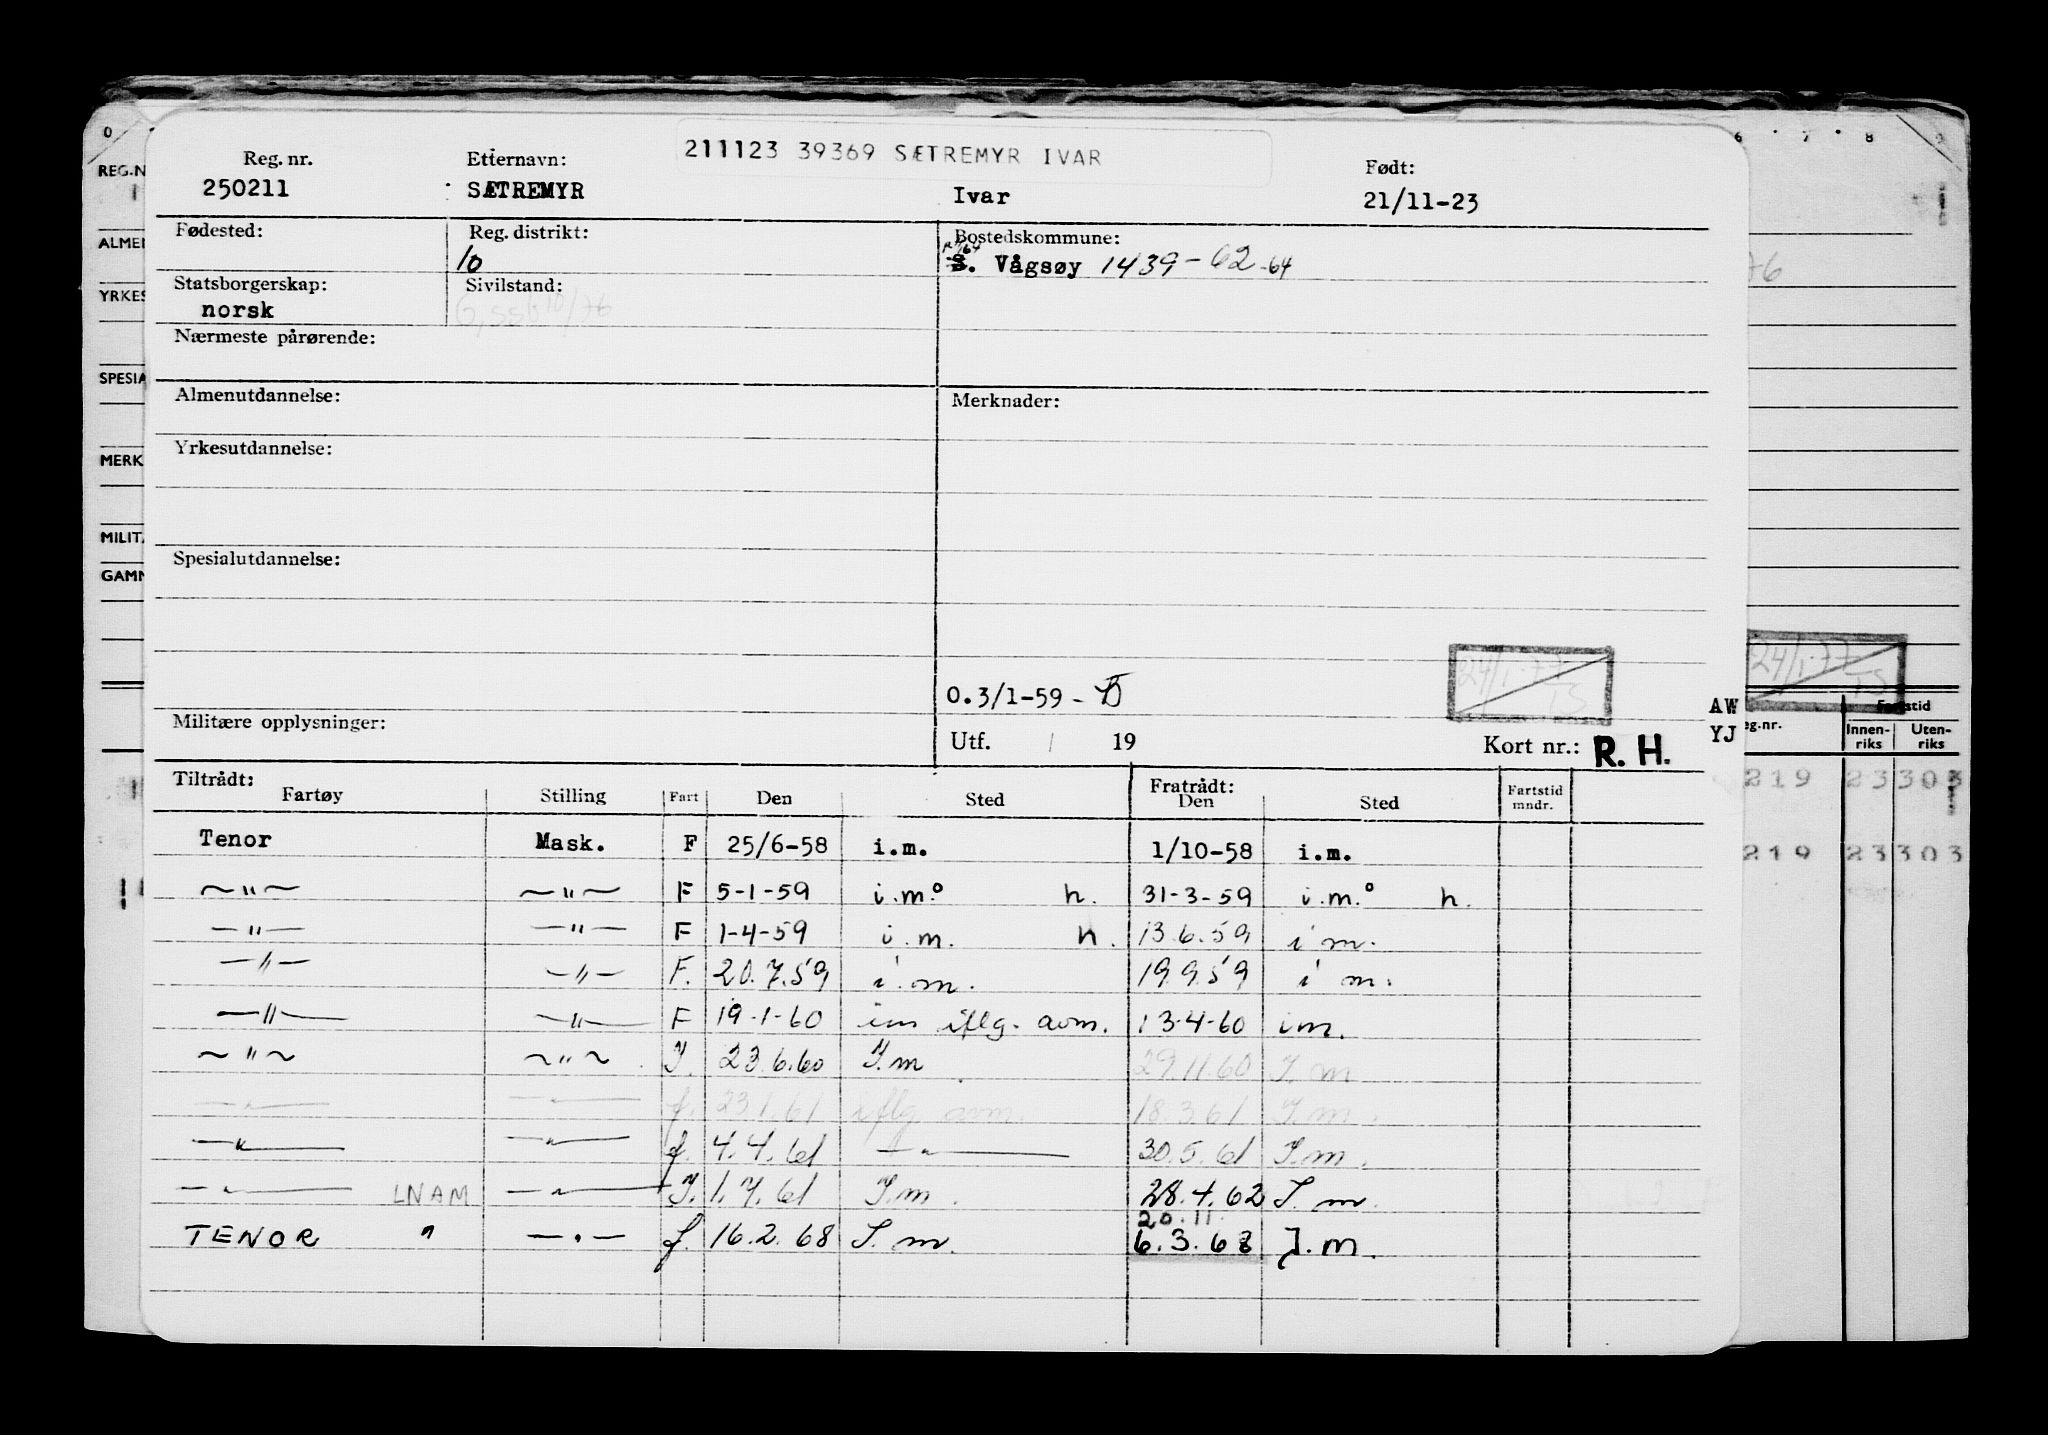 211123 39369 SÆTREMYR IVAR
Reg. nr. Etternavn: Født:
250211 SÆTREMYR Ivar 21/11-23
Fødested: Reg. distrikt: Bostedskommune:
10 S. Vågsøy 1439-62-64
Statsborgerskap: Sivilstand:
norsk
Nærmeste pårørende:
Almenutdannelse: Merknader:
Yrkesutdannelse:
Spesialutdannelse:
24/1-77
TS
O.3/1-59 -
Militære opplysninger: Utf. / 19 Kort nr.: R. H.
Tiltrådt: Fratrådt:
Fartøy Stilling Fart Den Sted Den Sted Fartstid mndr.
Tenor Mask. F 25/6-58 i.m. 1/10-58 i.m.
~"~ ~"~ F 5-1-59 i.m.° h. 31-3-59 i.m.° h.
—"— —"— F 1-4-59 i.m. h. 13.6.59 i m.
—"— —"— F. 20.7.59 i.m. 19.9.59 i m.
—"— —"— F 19-1-60 im iflg. avm. 13-4-60 im.
~"~ ~"~ I. 23.6.60 I.m 29.11.60 I.m
—"— —"— f. 23.1.61 iflg. avm. 18.3.61 I.m.
—"— —"— f. 4.4.61 —"— 30.5.61 I.m.
—"— LNAM —"— I. 1.7.61 I.m. 28.4.62 I.m.
20.11.
TENOR " —"— f. 16.2.68 I.m. 6.3.68 I.m.
REG.N
ALMEN
YRKES
SPESIA
MERK
MILITÆ
GAMM
0
6 7 8 9
76
24/1-77
TS
AW
YJ
eg.nr. Fartstid
Innen-riks Uten-riks
219 23 303
219 23 303